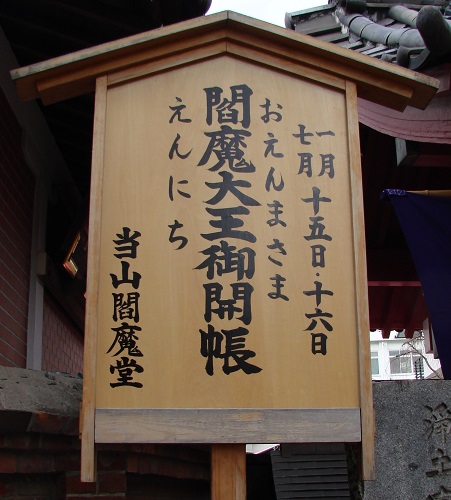 一月
七月 十五日・十六日
おえんまさま
閻魔大王御開帳
えんにち
当山閻魔堂
浄土